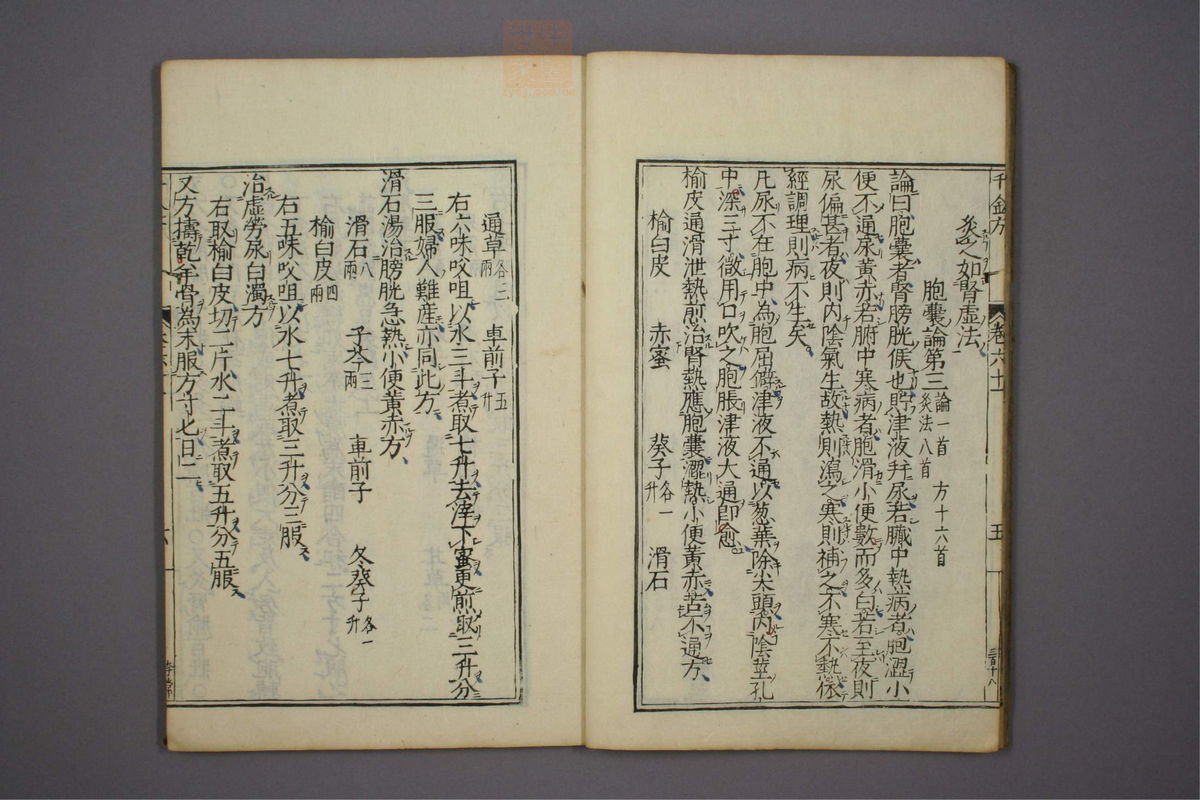 千金方 卷六十一 五 三百十八
灸之如腎虛法
胞囊論第三 論一首 方十六首 灸法八首
論曰胞囊者腎膀胱候也貯津液幷尿若臟中熱病者胞澀小
便不通尿黃赤若腑中寒病者胞滑小便數而多白若至夜則
尿偏甚者夜則內陰氣生故熱則瀉之寒則補之不寒不熱依
經調理則病不生矣
凡尿不在胞中為胞屈僻津液不通以葱葉除尖頭內陰莖孔
中深三寸微用口吹之胞脹津液大通即愈
榆皮通滑泄熱煎治腎熱應胞囊澀熱小便黃赤苦不通方
榆白皮 赤蜜 葵子各一升 滑石
通草各三兩 車前子五升
右六味㕮咀以水三斗煮取七升去滓下蜜更煎取三升分
三服婦人難產亦同此方
滑石湯治膀胱急熱小便黃赤方
滑石八兩 子芩三兩 車前子 冬葵子各一升
榆白皮四兩
右五味㕮咀以水七升煮取三升分三服
治虛勞尿白濁方
右取榆白皮切二斤水二斗煮取五升分五服
又方擣乾羊骨為末服方寸匕日二